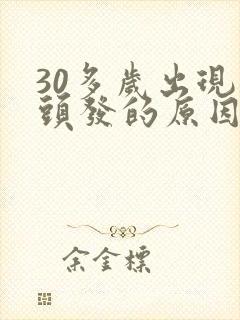 30多歲出現
頭發的原因
余金標